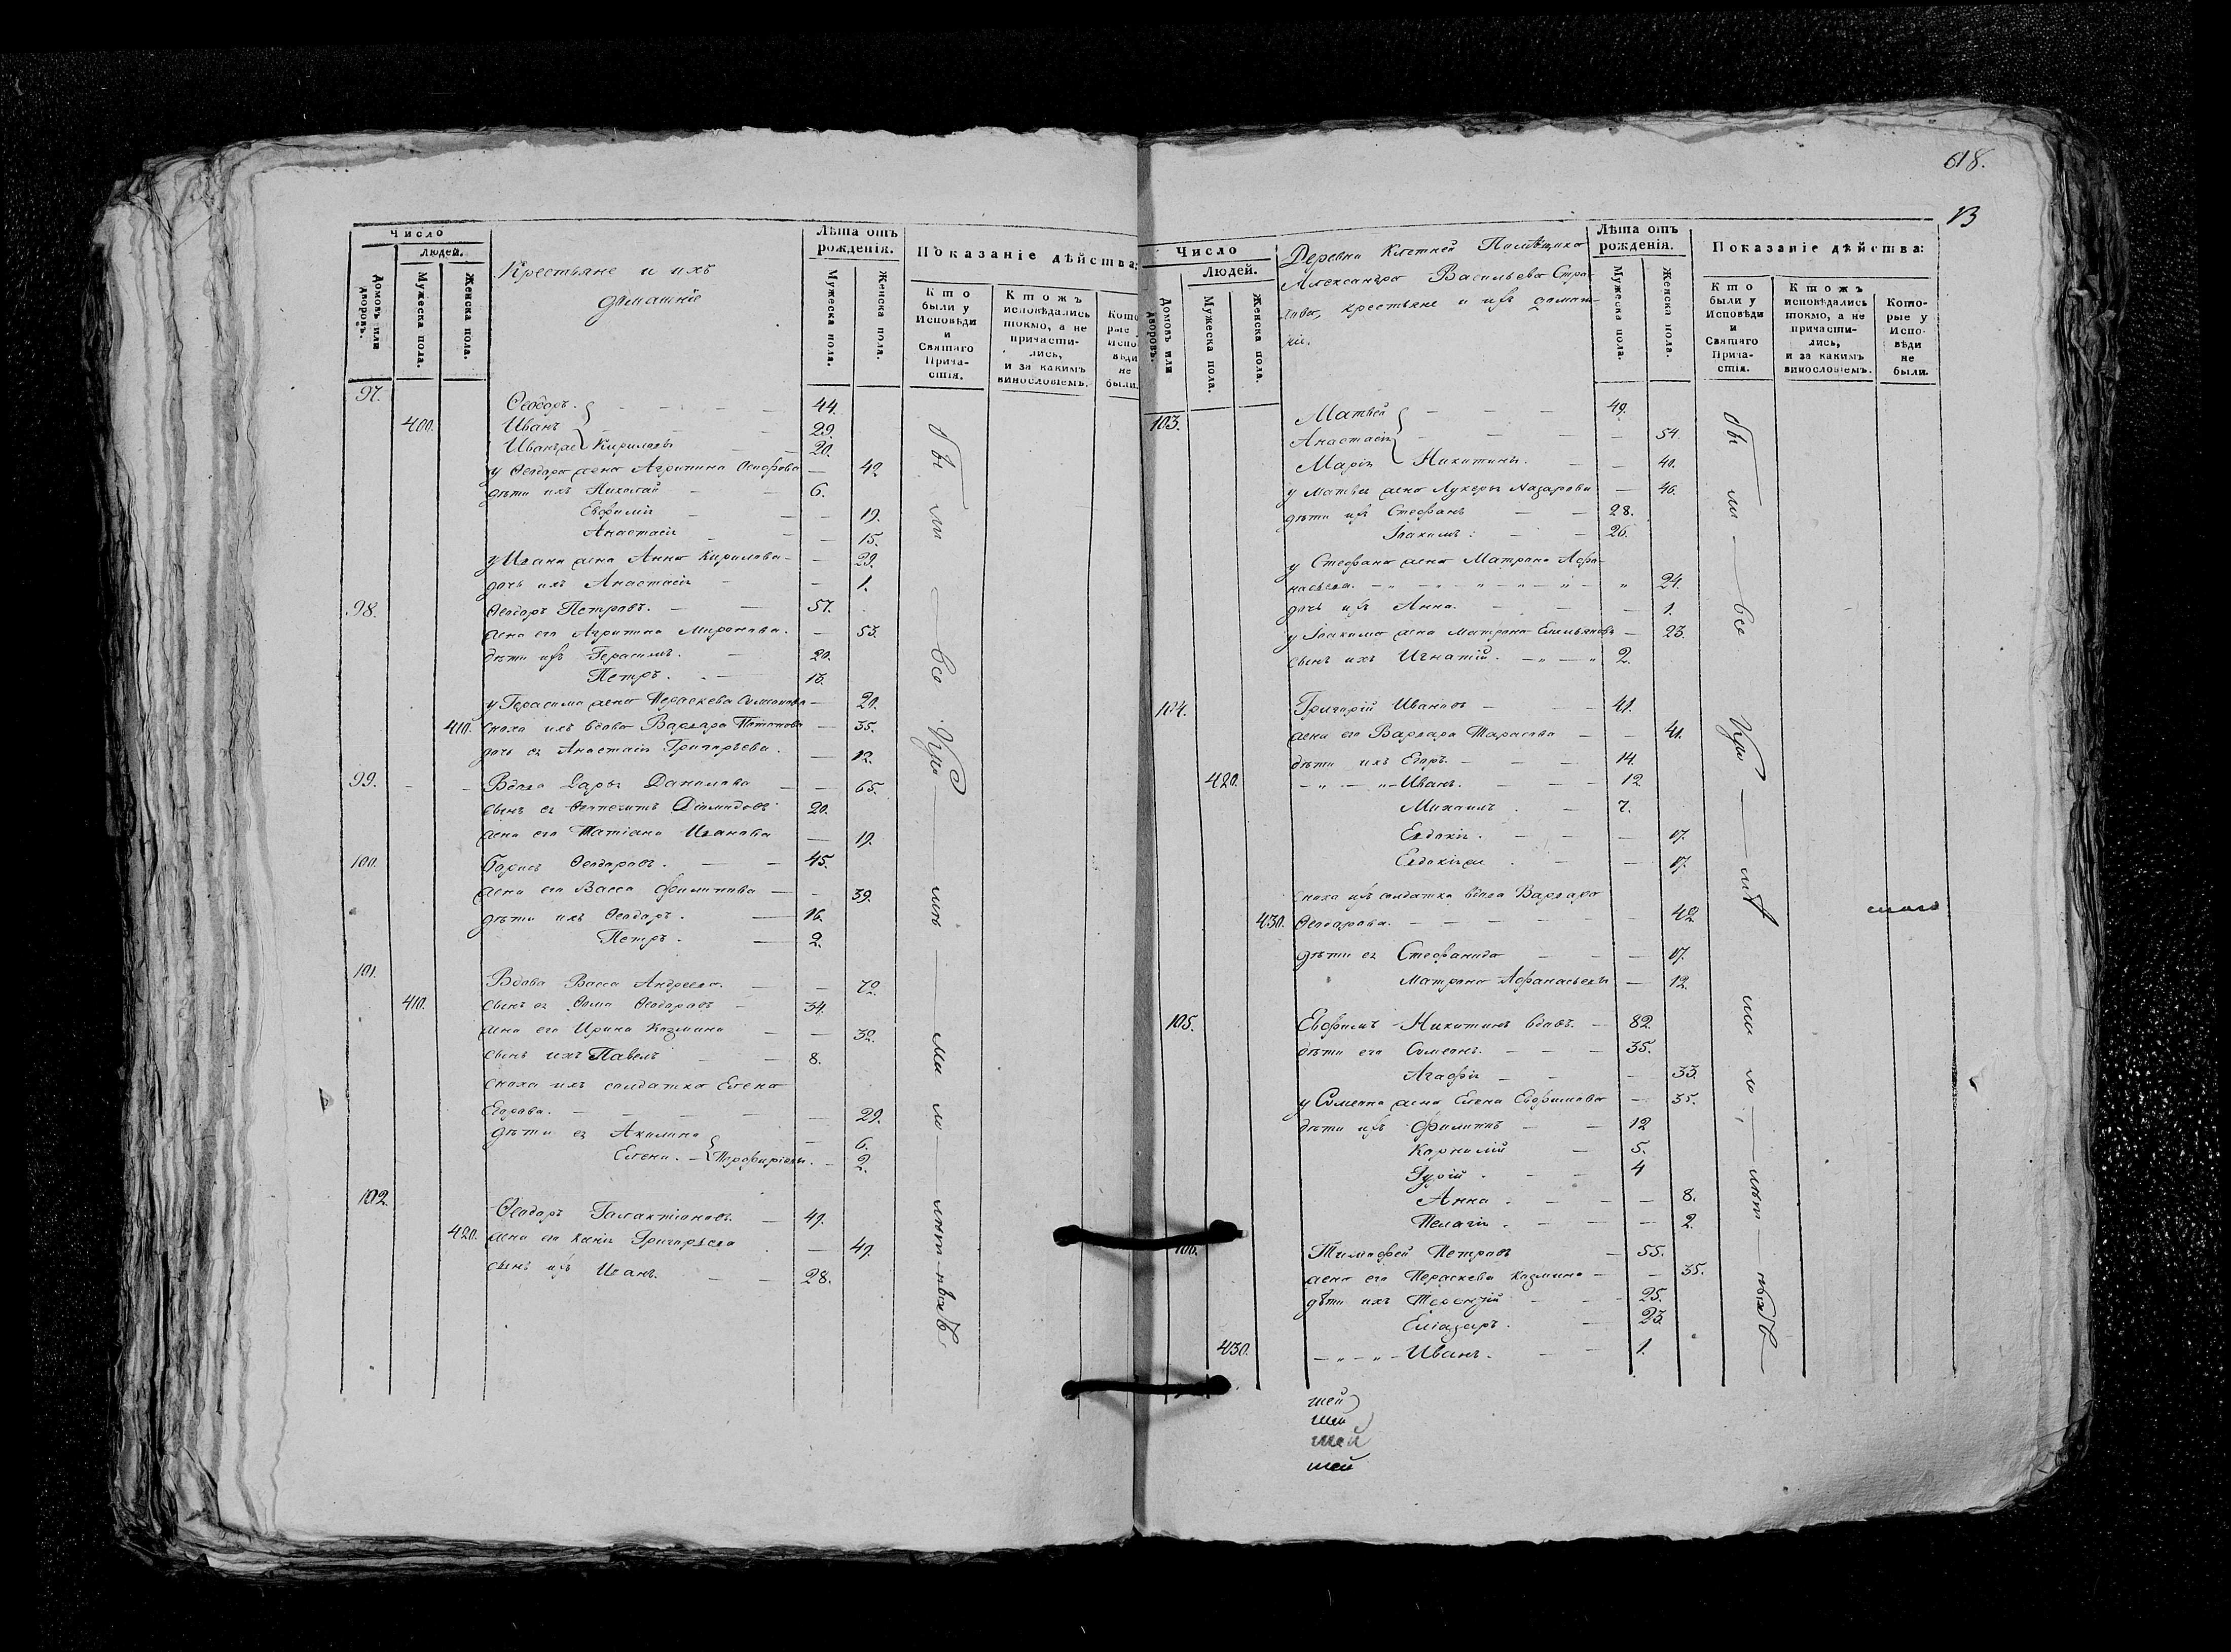 Число
людей.
Домовъ или дворовъ.
Мужеска пола.
Женска пола.
Крестьяне и ихъ
домашніе
Лѣта отъ рожденія.
Мужеска пола.
Женска пола.
Показаніе дѣйства:
Кто были у Исповѣди и Святаго Прича-стія.
Ктожъ исповѣдались токмо, а не причасти-лись, и за какимъ винословіемъ.
Кото рые Испо вѣди не были.
97. Ѳеодоръ. 44.
400. Иванъ 29.
Иванъ же Кириловы 20.
у Ѳеодора жена Агрипина 42
дѣти ихъ Николай 6.
Евфимія 19.
Анастасія 15.
у Ивана жена Анна Кирилова 29.
дочь ихъ Анастасія 1.
98. Ѳеодоръ Петровъ. 57.
жена его Агрипина Миронова. 53.
дѣти ихъ Герасимъ. 20.
Петръ. 13.
у Герасима жена Параскева Симеонова 20.
410. сноха ихъ вдова Варвара Потапова 35.
дочь ея Анастасія Григорьева. 12.
99. Вдова Дарья Данилова 65.
сынъ ея Діомидовъ 20.
жена его Татіана Иванова 19.
100. Борисъ Ѳеодоровъ. 45.
жена его Васса Филипова 39.
дѣти ихъ Ѳеодоръ. 16.
Петръ. 2.
101. Вдова Васса Андреева. 72.
410. сынъ ея Ѳома Ѳеодоровъ 34.
жена его Ирина Козмина 32.
сынъ ихъ Павелъ 8.
сноха ихъ солдатка Елена
Егорова. 29.
дѣти ея Акилина 6.
Елена. Порфиріевы. 2.
102. Ѳеодоръ Галактіоновъ. 49.
420. жена его Ксенія Григорьева 49.
сынъ ихъ Иванъ. 28.
618.
13
Число
Людей.
Домовъ или дворовъ.
Мужеска пола.
Женска пола.
Деревни Клетней Помѣщика
Александра Васильева Стра-
хова, крестьяне и ихъ домаш-
ніи.
Лѣта отъ рожденія.
Мужеска пола.
Женска пола.
Показаніе дѣйства:
Кто были у Исповѣди и Святаго Прича-стія.
Ктожъ исповѣдались токмо, а не причасти-лись, и за какимъ винословіемъ.
Кото-рые у Испо-вѣди не были.
103. Матвей 49.
Анастасія 54.
Марія Никитины. 40.
у Матвея жена Лукерья Назарова 46.
дѣти ихъ Стефанъ 28.
Іоакимъ: 26.
у Стефана жена Матрона Афа-
насьева. 24.
дочь ихъ Анна. 1.
у Іоакима жена Матрона Емельянова 23.
сынъ ихъ Игнатій. 2.
104. Григорій Ивановъ 41.
жена его Варвара Тарасова 41.
дѣти ихъ Егоръ. 14.
420. Иванъ. 12
Михаилъ. 7.
Евдокія. 17.
Евдокія же 17.
сноха ихъ солдатка вдова Варвара
430. Ѳеодорова. 42
дѣти ея Стефанида 17.
Матрона Афанасьевы 12.
105. Евфимъ Никитинъ вдовъ. 82.
дѣти его Симеонъ. 35.
Агафія 33.
у Симеона жена Елена Евфимова 35.
дѣти ихъ Филиппъ 12
Корнилій 5.
Гурій. 4
Анна. 8.
Пелагія. 2.
106. Тимофей Петровъ 55.
жена его Параскева Козмина 35.
дѣти ихъ Терентій 25.
Еліазаръ. 23.
430. Иванъ. 1.
шей
шей
шей
шей